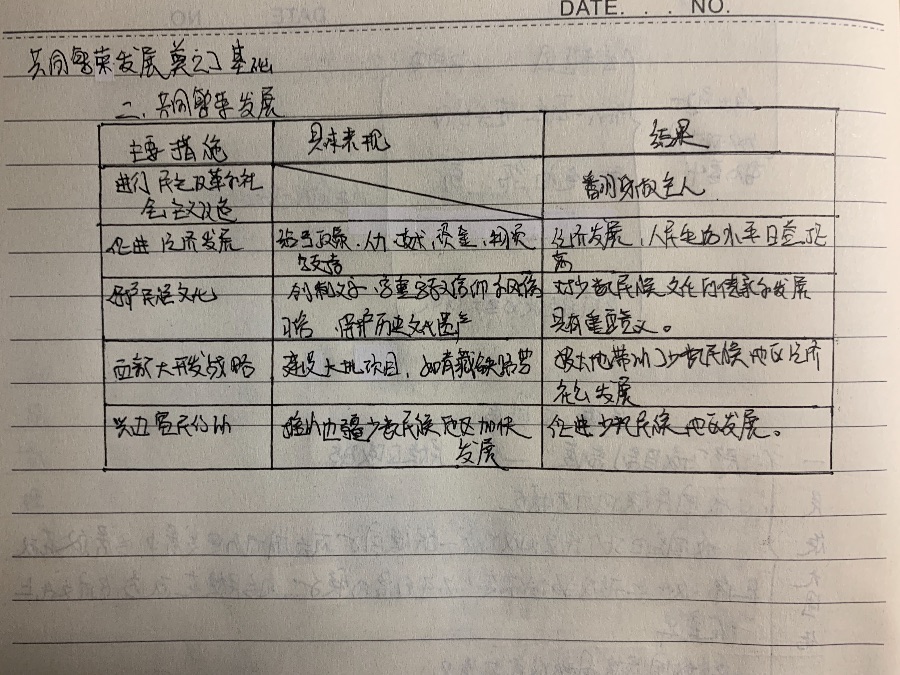 DATE. . . NO.
共同繁荣发展奠定了基础
二、共同繁荣发展
主要措施 具体表现 结果
进行民主改革和社
会主义改造 翻身做主人
促进经济发展 给予政策、人力、技术、资金、物资 经济发展，人民生活水平日益提
等支持 高
保护民族文化 创制文字、尊重宗教信仰和风俗 对少数民族文化的传承和发展
习惯、保护历史文化遗产 具有重要意义。
西部大开发战略 建设大批项目，如青藏铁路等 极大地带动了少数民族地区经济
社会发展
兴边富民行动 推动边疆少数民族地区加快 促进少数民族地区发展。
发展